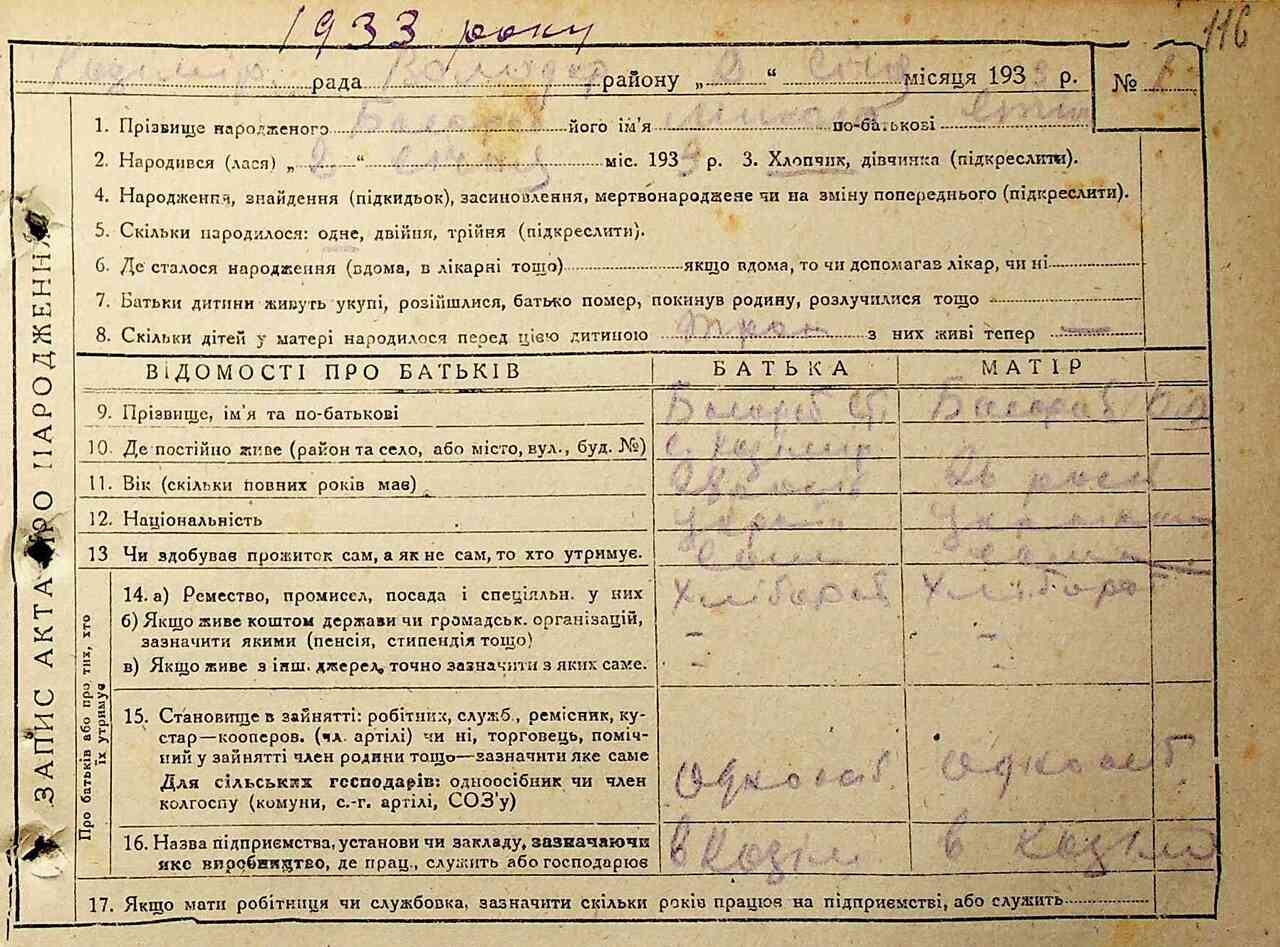 1933 року
116
рада Володар району „ 2 “ січ місяця 1933 р. № 1
1. Прізвище народженого його ім'я по-батькові
2. Народився (лася) „ 2 “ січня міс. 1933 р. 3. Хлопчик, дівчинка (підкреслити).
4. Народження, знайдення (підкидьок), засиновлення, мертвонароджене чи на зміну попереднього (підкреслити).
5. Скільки народилося: одне, двійня, трійня (підкреслити).
6. Де сталося народження (вдома, в лікарні тощо) якщо вдома, то чи допомагав лікар, чи ні
7. Батьки дитини живуть укупі, розійшлися, батько помер, покинув родину, розлучилися тощо
8. Скільки дітей у матері народилося перед цією дитиною з них живі тепер —
ВІДОМОСТІ ПРО БАТЬКІВ БАТЬКА МАТІР
9. Прізвище, ім'я та по-батькові
10. Де постійно живе (район та село, або місто, вул., буд. №) с.
11. Вік (скільки повних років має) 28 років 26 років
12. Національність
13 Чи здобував прожиток сам, а як не сам, то хто утримує. сам сама
14. а) Ремество, промисел, посада і спеціяльн. у них Хлібороб Хлібороб
б) Якщо живе коштом держави чи громадськ. організацій, – –
зазначити якими (пенсія, стипендія тощо)
в) Якщо живе з інш. джерел, точно зазначити з яких саме. – –
15. Становище в зайнятті: робітник, служб., ремісник, ку-
стар—кооперов. (чл. артілі) чи ні, торговець, поміч-
ний у зайнятті член родини тощо—зазначити яке саме
Для сільських господарів: одноосібник чи член Одноосіб Одноосіб
колгоспу (комуни, с.-г. артілі, СОЗ'у)
16. Назва підприємства, установи чи закладу, зазначаючи
яке виробництво, де прац., служить або господарює в в
17. Якщо мати робітниця чи службовка, зазначити скільки років працює на підприємстві, або служить
ЗАПИС АКТА ПРО НАРОДЖЕННЯ
Про батьків або про тих, хто
їх утримує